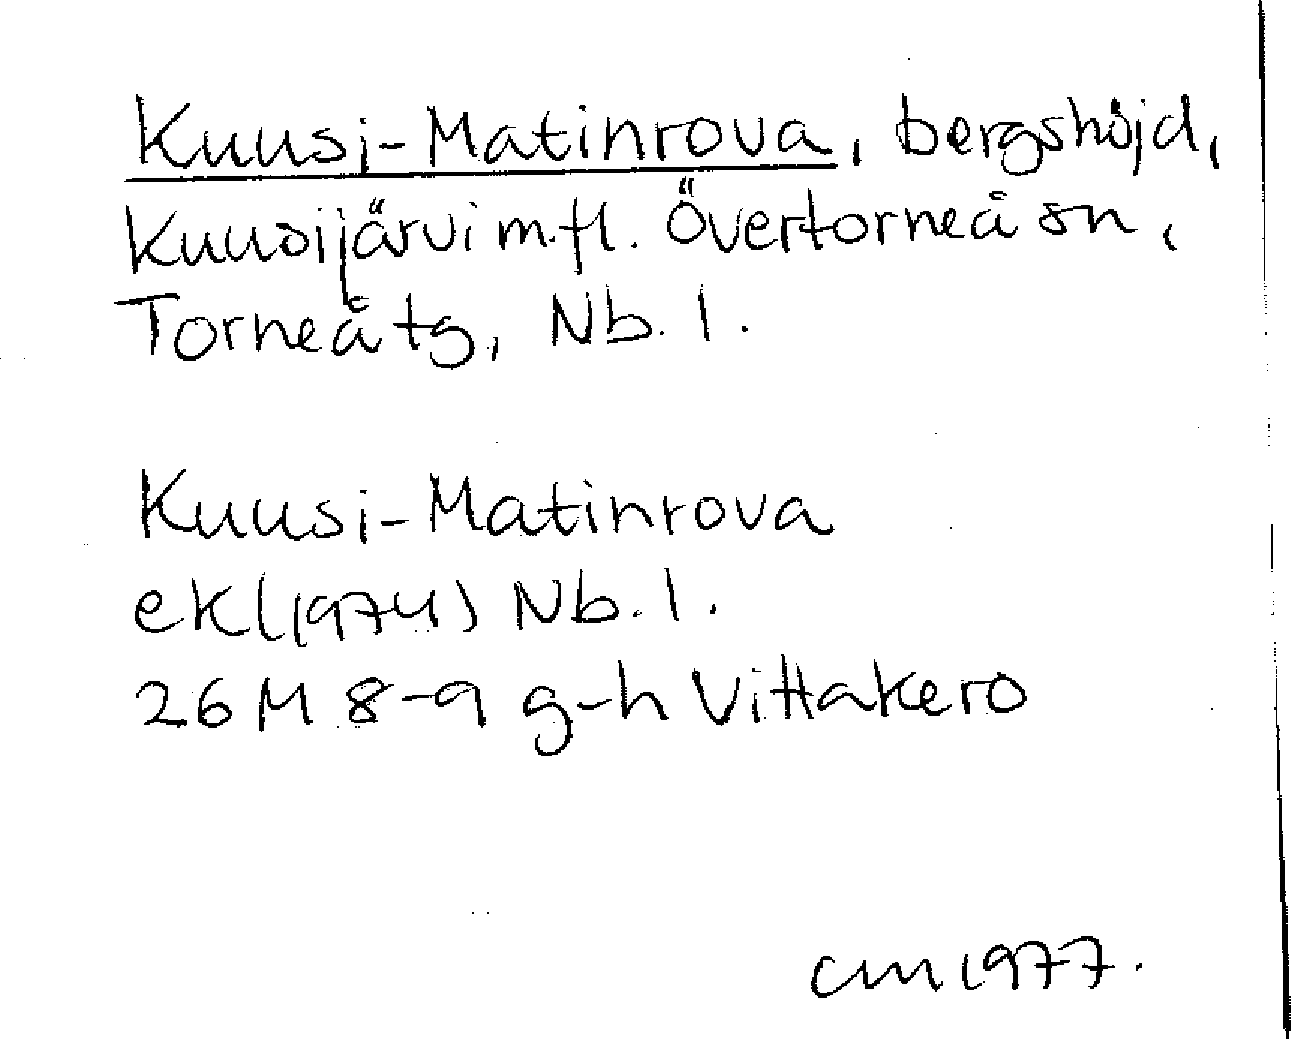 Kuusi-Matinrova, bergshöjd,
Kuusijärvi m.fl. Övertorneå sn,
Torneå tg, Nb. l.
Kuusi-Matinrova
ek (1974) Nb. l.
26 M 8-9 g-h Vittakero
cm 1977.